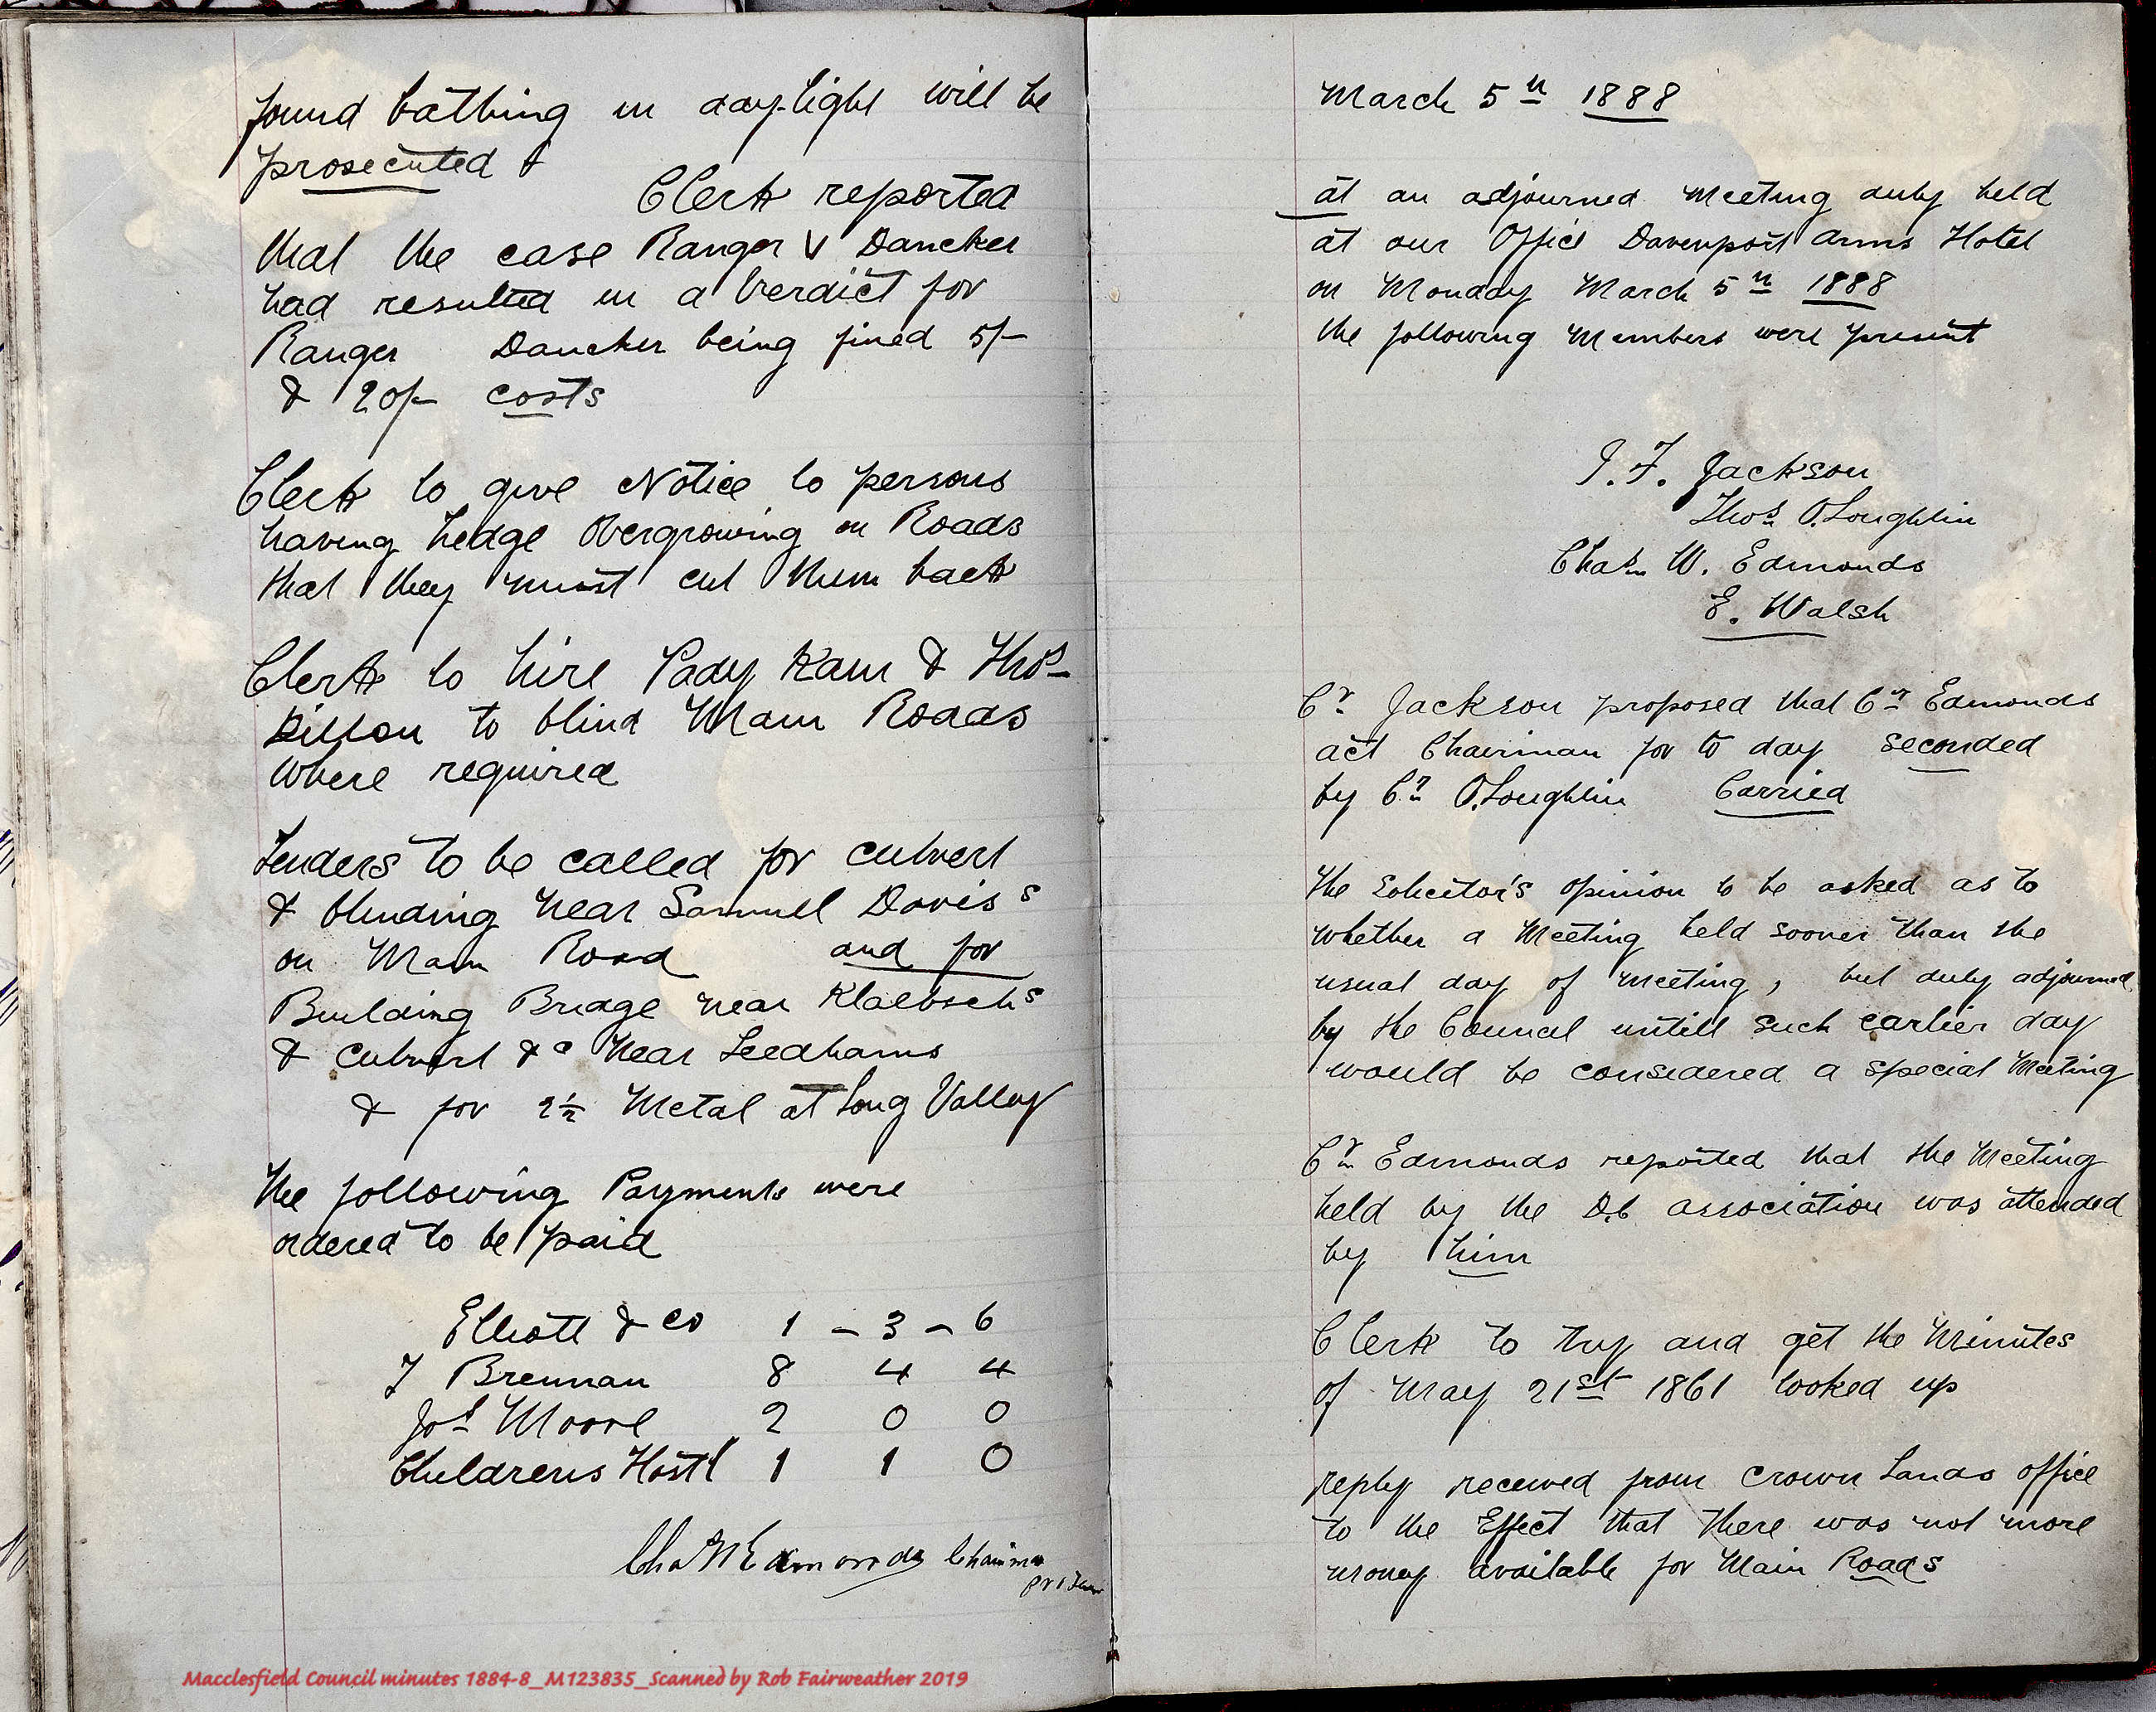 found bathing in day-light will be
prosecuted &
Clerk reported
that the case Ranger v Dancker
had resulted in a Verdict for
Ranger Dancker being fined 5/-
& 20/- costs
Clerk to give Notice to persons
having hedge Overgrowing on Roads
that they must cut them back
Clerk to hire Pady Kain & Thos
Dillon to blind Main Roads
Where required
Tenders to be called for culvert
& blinding near Samuel Davis s
on Main Road and for
Building Bridge near Klaebsch s
& culvert &c Near Leedhams
& for 2½ Metal at Long Valley
The following Payments were
ordered to be paid
Elliott & Co 1 - 3 - 6
J Brennan 8 4 4
Jos Moore 2 0 0
Childrens Hostl 1 1 0
Chas W Edmonds Chairman
pro tem
March 5th 1888
at an adjourned Meeting duly held
at our Office Davenport Arms Hotel
on Monday March 5th 1888
the following Members were present
J. F. Jackson
Thos O.Loughlin
Chas W. Edmonds
E. Walsh
Cr Jackson proposed that Cr Edmonds
act Chairman for to day seconded
by Cr O.Loughlin Carried
The Solicitor's opinion to be asked as to
whether a Meeting held sooner than the
usual day of meeting, but duly adjourned
by the Council untill such earlier day
would be considered a special Meeting
Cr Edmonds reported that the Meeting
held by the D.C association was attended
by him
Clerk to try and get the Minutes
of May 21st 1861 looked up
reply received from Crown Lands office
to the Effect that there was not more
money available for Main Roads
Macclesfield Council minutes 1884-8_M123835_Scanned by Rob Fairweather 2019